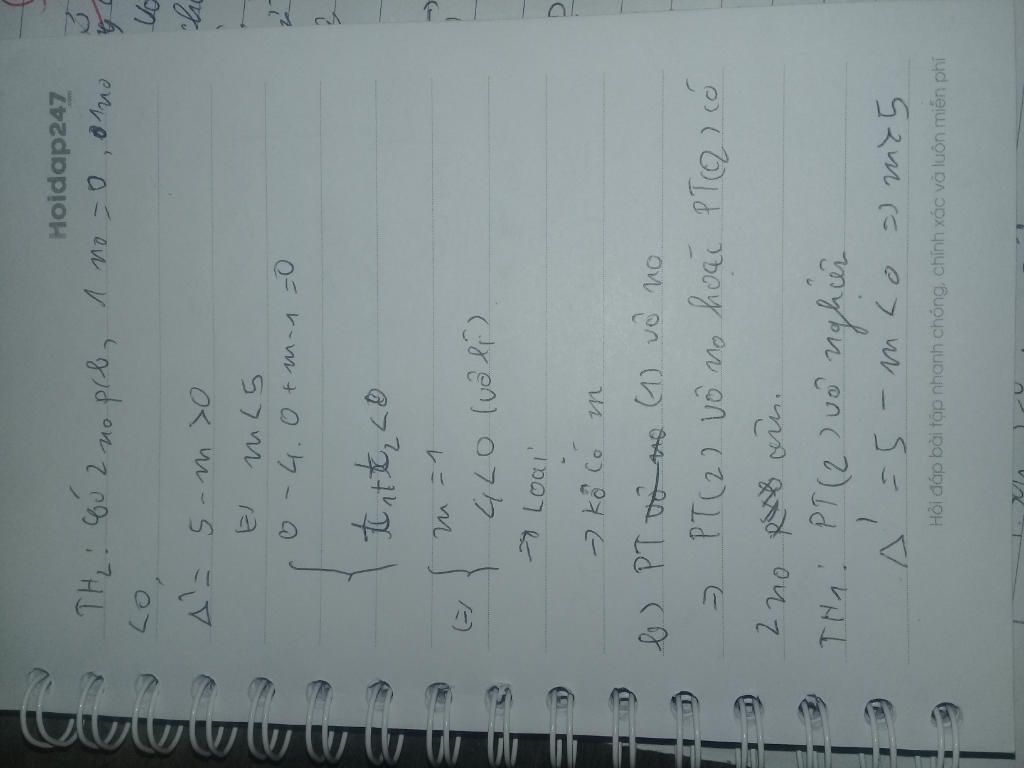 Hoidap247
TH2: có 2 no pb, 1 no = 0, 1 no
< 0,
Δ' = 5 - m > 0
(=) m < 5
0 - 4.0 + m - 1 = 0
t1 + t2 < 0
(=) m = 1
4 < 0 (vô lí)
=> Loại
=> Kô có m
b) PT (1) vô no
=> PT (2) vô no hoặc PT (2) có
2 no âm.
TH1: PT (2) vô nghiệm
Δ' = 5 - m < 0 => m > 5
Hỏi đáp bài tập nhanh chóng, chính xác và luôn miễn phí